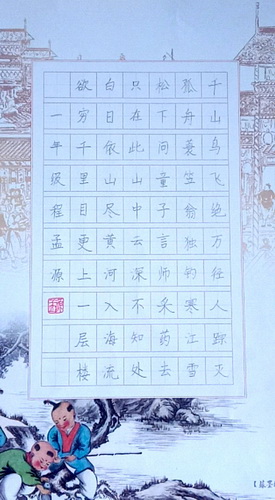 千山鸟飞绝万径人踪灭
孤舟蓑笠翁独钓寒江雪
松下问童子言师采药去
只在此山中云深不知处
白日依山尽黄河入海流
欲穷千里目更上一层楼
一年级程孟源